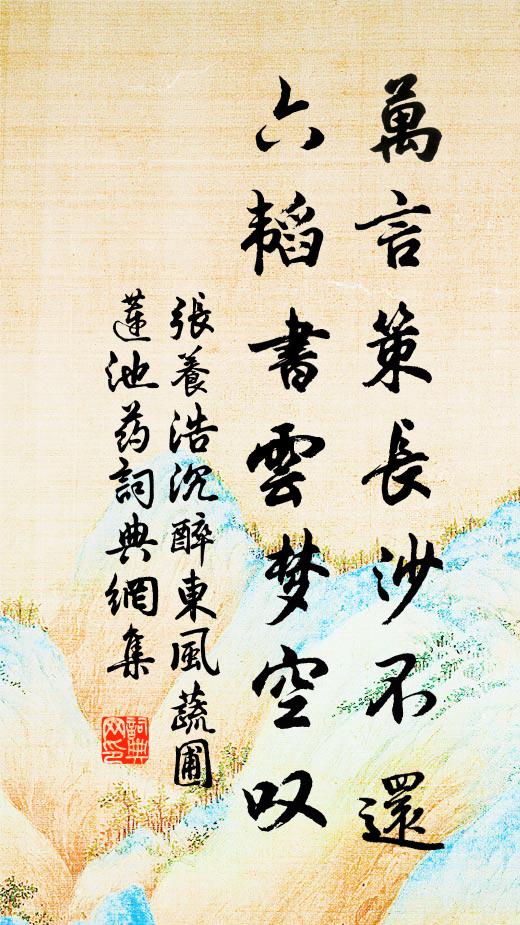 萬言策長沙不還
六韬書雲梦空叹
張養浩沉醉東風蔬圃
蓮池药詞典網集
詞典
网印